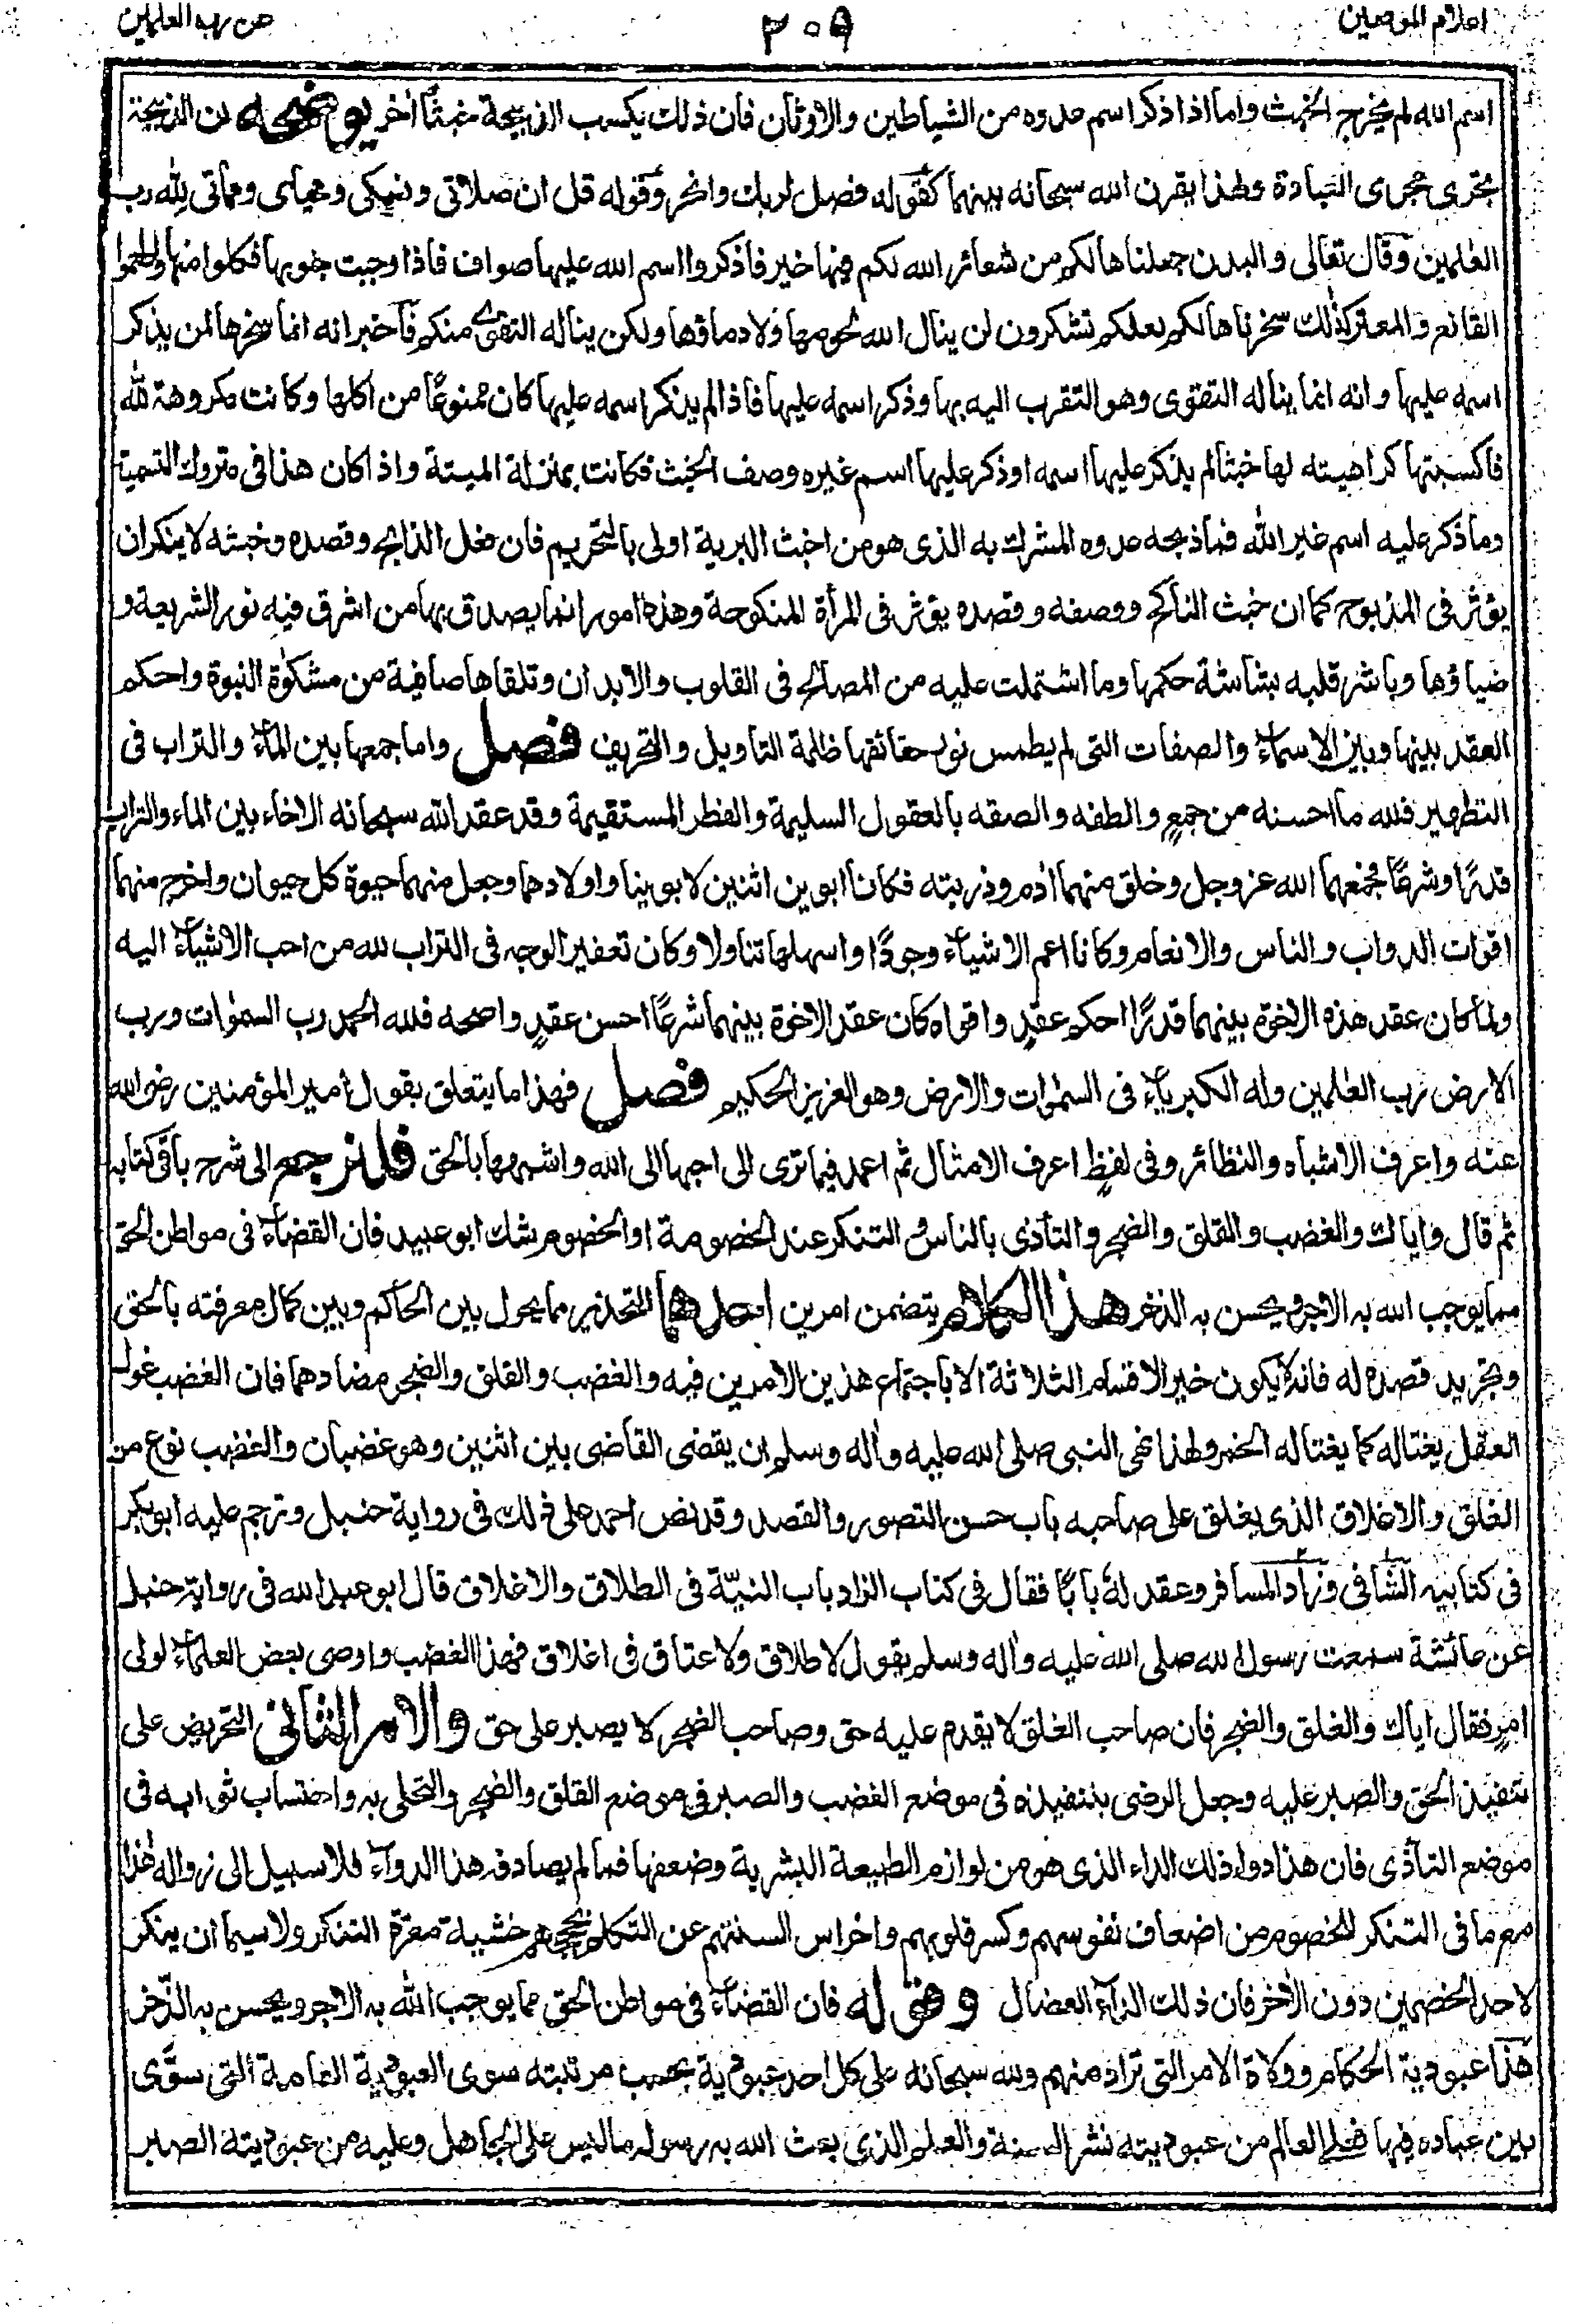 اعلام الموقعين
٢٠٩
عن رب العلمين
اسم الله لم يخرج الخبث واما اذا ذكر اسم عدوه من الشياطين والاوثان فان ذلك يكسب الذبيحة خبثًا اخر يوضحه ان الذبيحة
تجري مجرى العبادة ولهذا يقرن الله سبحانه بينهما كقوله فصل لربك وانحر وقوله قل ان صلاتي ونسكي ومحياي ومماتي لله رب
العلمين وقال تعالى والبدن جعلناها لكم من شعائر الله لكم فيها خير فاذكروا اسم الله عليها صواف فاذا وجبت جنوبها فكلوا منها واطعموا
القانع والمعتر كذلك سخرناها لكم لعلكم تشكرون لن ينال الله لحومها ولا دماؤها ولكن يناله التقوى منكم فاخبر انه انما سخرها لمن يذكر
اسمه عليها وانه انما يناله التقوى وهو التقرب اليه بها وذكر اسمه عليها فاذا لم يذكر اسمه عليها كان ممنوعًا من اكلها وكانت مكروهة لله
فاكسبتها كراهيته لها خبثا لم يذكر عليها اسمه او ذكر عليها اسم غيره وصف الخبث فكانت بمنزلة الميتة واذا كان هذا في متروك التسمية
وما ذكر عليه اسم غير الله فما ذبحه عدوه المشرك به الذي هو من اخبث البرية اولى بالتحريم فان فعل الذابح وقصده وخبثه لا ينكر ان
يؤثر في المذبوح كما ان خبث الناكح ووصفه وقصده يؤثر في المرأة المنكوحة وهذه امور انما يصدق بها من اشرق فيه نور الشريعة و
ضياؤها وباشر قلبه بشاشة حكمها وما اشتملت عليه من المصالح في القلوب والابدان وتلقاها صافية من مشكوة النبوة واحكم
العقد بينها وبين الاسماء والصفات التي لم يطمس نور حقائقها ظلمة التاويل والتحريف فصل واما جمعها بين الماء والتراب في
التطهير فلله ما احسنه من جمع والطفه والصقه بالعقول السليمة والفطر المستقيمة وقد عقد الله سبحانه الاخاء بين الماء والتراب
قدرًا وشرعًا فجمعهما الله عز وجل وخلق منهما ادم وذريته فكانا ابوين اثنين لابوينا واولادهما وجعل منهما حيوة كل حيوان واخرج منهما
اقوات الدواب والناس والانعام وكانا اعم الاشياء وجودًا واسهلها تناولا وكان تعفير الوجه في التراب لله من احب الاشياء اليه
ولما كان عقد هذه الاخوة بينهما قدرًا احكم عقد واقواه كان عقد الاخوة بينهما شرعًا احسن عقد واصحه فلله الحمد رب السموات ورب
الارض رب العلمين وله الكبرياء في السموات والارض وهو العزيز الحكيم فصل فهذا ما يتعلق بقول امير المؤمنين رضي الله
عنه واعرف الاشباه والنظائر وفي لفظ اعرف الامثال ثم اعمد فيما ترى الى احبها الى الله واشبهها بالحق فلنرجع الى شرح باقي كتابه
ثم قال واياك والغضب والقلق والضجر والتأذي بالناس والتنكر عند الخصومة او الخصوم شك ابو عبيد فان القضاء في مواطن الحق
مما يوجب الله به الاجر ويحسن به الذخر هذا الكلام يتضمن امرين احدهما التحذير مما يحول بين الحاكم وبين كمال معرفته بالحق
وتجريد قصده له فانه لا يكون خير الاقسام الثلاثة الا باجتماع هذين الامرين فيه والغضب والقلق والضجر مضادهما فان الغضب غول
العقل يغتاله كما يغتاله الخمر ولهذا نهى النبي صلى الله عليه واله وسلم ان يقضي القاضي بين اثنين وهو غضبان والغضب نوع من
الغلق والاغلاق الذي يغلق على صاحبه باب حسن التصور والقصد وقد نص احمد على ذلك في رواية حنبل وترجم عليه ابو بكر
في كتابيه الشافي وزاد المسافر وعقد له بابًا فقال في كتاب الزاد باب النية في الطلاق والاغلاق قال ابو عبد الله في رواية حنبل
عن عائشة سمعت رسول الله صلى الله عليه واله وسلم يقول لا طلاق ولا عتاق في اغلاق فهذا الغضب واوصى بعض العلماء لولي
امر فقال اياك والغلق والضجر فان صاحب الغلق لا يقدم عليه حق وصاحب الضجر لا يصبر على حق والامر الثاني التحريض على
تنفيذ الحق والصبر عليه وجعل الرضى بتنفيذه في موضع الغضب والصبر في موضع القلق والضجر والتحلي به واحتساب ثوابه في
موضع التأذي فان هذا دواء ذلك الداء الذي هو من لوازم الطبيعة البشرية وضعفها فما لم يصادفه هذا الدواء فلا سبيل الى زواله هذا
مع ما في التنكر للخصوم من اضعاف نفوسهم وكسر قلوبهم واخراس السنتهم عن التكلم بحججهم خشية معرة التنكر ولا سيما ان يتنكر
لاحد الخصمين دون الاخر فان ذلك الداء العضال وقوله فان القضاء في مواطن الحق مما يوجب الله به الاجر ويحسن به الذخر
هذا عبودية الحكام وولاة الامر التي تراد منهم ولله سبحانه على كل احد عبودية بحسب مرتبته سوى العبودية العامة التي سوى
بين عباده فيها فعلى العالم من عبوديته نشر السنة والعلم الذي بعث الله به رسوله ما ليس على الجاهل وعليه من عبودية الصبر